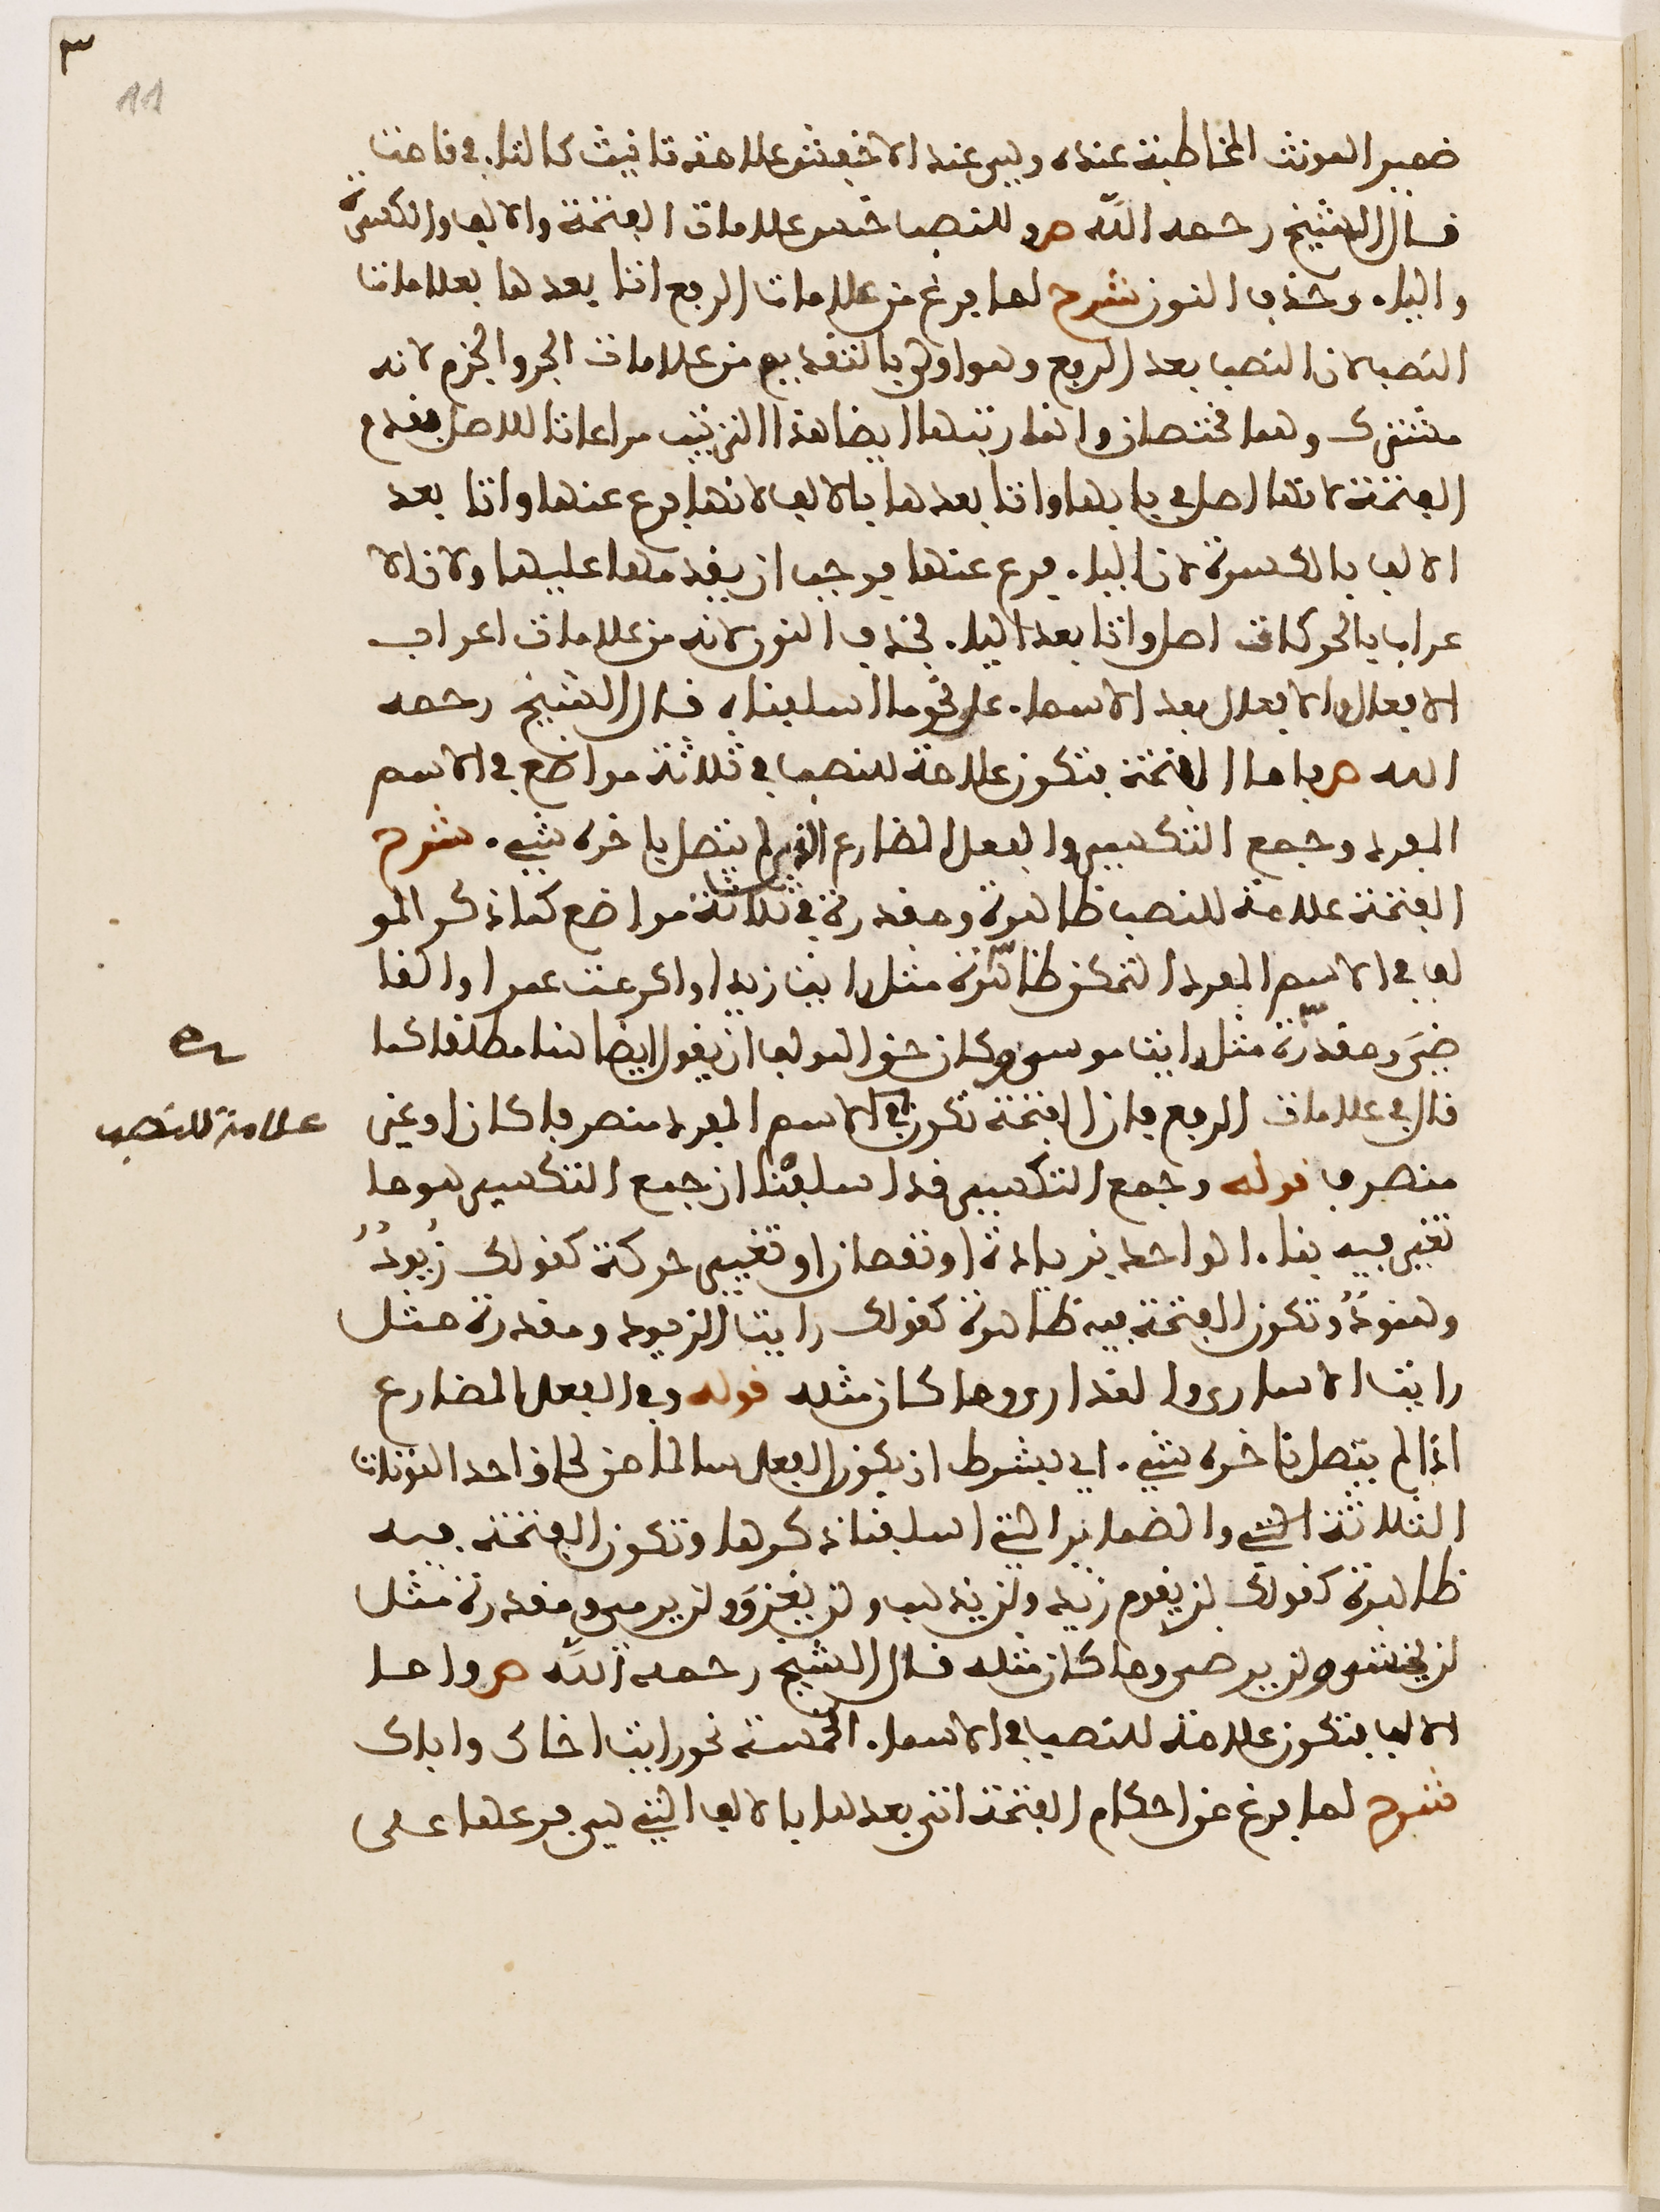 ٣
11
ضمير المونث المخاطبة عنده وليس عند الاخفش علامة تانيث كالتاء في قامت
قال الشيخ رحمه الله ص وللنصب خمس علامات الفتحة والالف والكسرة
والياء وحذف النون شرح لما فرغ من علامات الرفع اتا بعدها بعلامات
النصب لان النصب بعد الرفع وهو اولى بالتقديم من علامات الجر والجزم لانه
مشترك وهما مختصان وانما رتبها ايضا هذا الترتيب مراعاتا للاصل فقدم
الفتحة لانها اصل في بابها واتا بعدها بالالف لانها فرع عنها واتا بعد
الالف بالكسرة لان الياء فرع عنها فوجب ان يقدمها عليها ولان الا
عراب بالحركات اصل واتا بعد الياء بحذف النون لانه من علامات اعراب
الافعال والافعال بعد الاسماء على نحو ما اسلفناه قال الشيخ رحمه
الله ص فاما الفتحة فتكون علامة للنصب في ثلاثة مواضع في الاسم
المفرد وجمع التكسير والفعل المضارع الذي لم يتصل باخره شيء شرح
الفتحة علامة للنصب ظاهرة ومقدرة في ثلاثة مواضع كما ذكر المو
لف في الاسم المفرد المتمكن ظاهرة مثل رايت زيدا واكرمت عمرا والقا
ضيَ ومقدرة مثل رايت موسى وكان حق المولف ان يقول ايضا هنا مطلقا كما
قال في علامات الرفع فان الفتحة تكون في الاسم المفرد منصرفا كان او غير
علامة للنصب
منصرف قوله وجمع التكسير قد اسلفنا ان جمع التكسير هو ما
تغير فيه بناء الواحد بزيادة او نقصان او تغيير حركة كقولك زُيودٌ
وهنودٌ وتكون الفتحة فيه ظاهرة كقولك رايت الزيود ومقدرة مثل
رايت الاسارى والعذارى وما كان مثله قوله وفي الفعل المضارع
اذا لم يتصل باخره شيء اي بشرط ان يكون الفعل سالما من لحاق احد النونات
الثلاثة والضمائر التي اسلفنا ذكرها وتكون الفتحة فيه
ظاهرة كقولك لن يقوم زيد ولن يذهب ولن يغزوَ ولن يرمي ومقدرة مثل
لن يخشى ولن يرضى وما كان مثله قال الشيخ رحمه الله ص واما
الالف فتكون علامة للنصب في الاسماء الخمسة نحو رايت اخاك واباك
شرح لما فرغ من احكام الفتحة اتى بعدها بالالف التي هي فرعها على